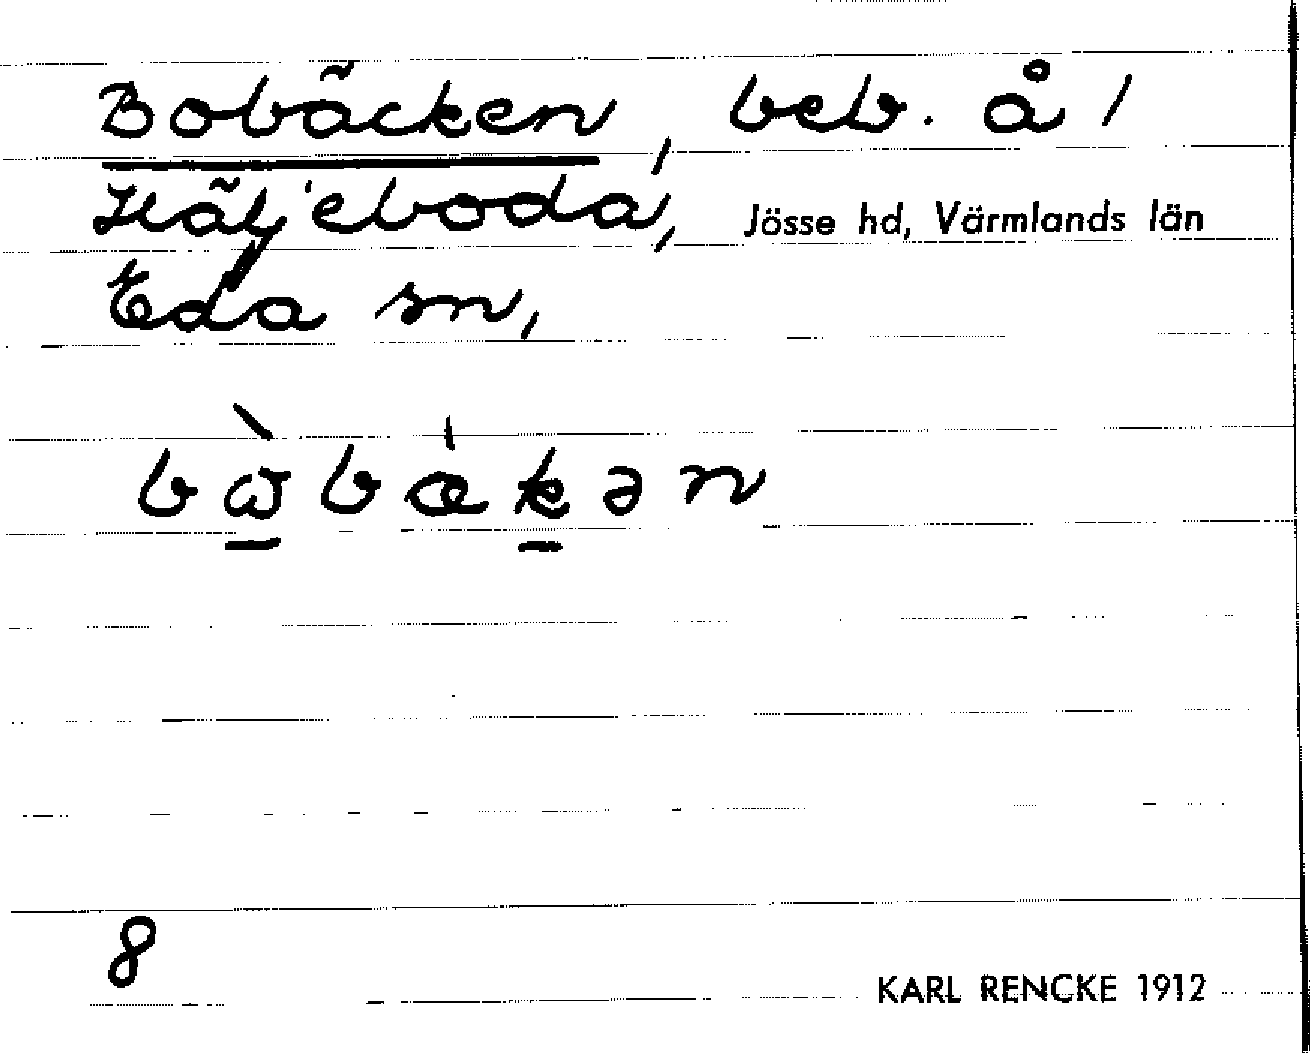 Bobäcken, beb. å /
Häljeboda, Jösse hd, Värmlands län
Eda sn,
bὼbækən
8
KARL RENCKE 1912